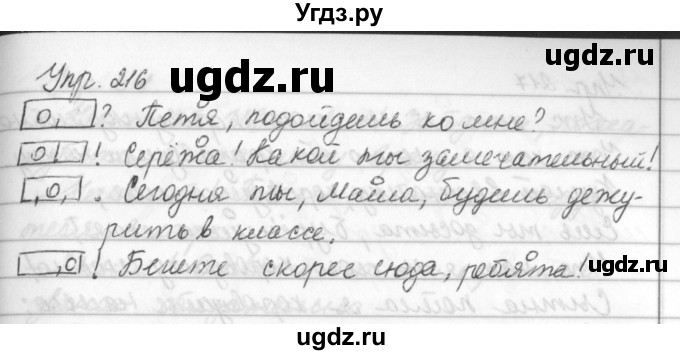 Угдз.ру
Упр. 216
ugdz.ru ugdz.ru
о, ? Петя, подойдешь ко мне?
о! ! Серёжа! Какой ты замечательный!
,о, . Сегодня ты, Маша, будешь дежу-
рить в классе.
,о ! Бегите скорее сюда, ребята!
ugdz.ru
ugdz.ru ugdz.ru